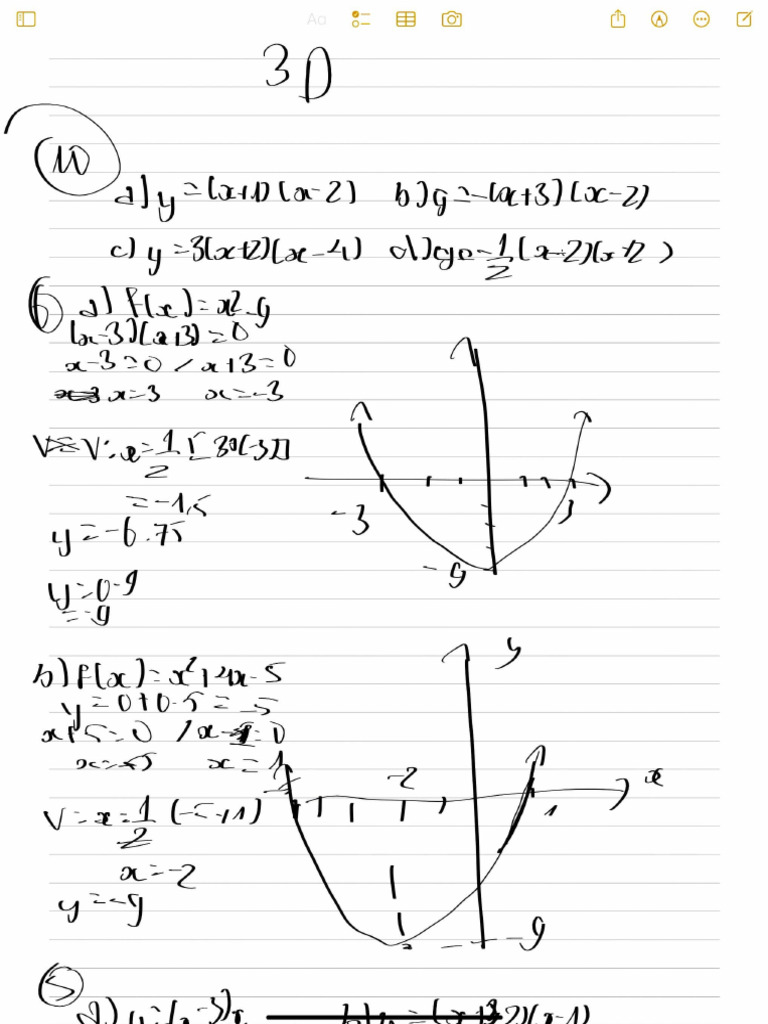 Aa
3D
10
a) y = (x+1)(x-2) b) y = -(x+3)(x-2)
c) y = 3(x+2)(x-4) d) y = -1/2 (x-2)(x+2)
6 a) f(x) = x²-9
(x-3)(x+3) = 0
x-3=0 / x+3=0
x=3 x=-3
= -1,5
y = -6.75
-3
3
-9
y=0-9
= -9
y
b) f(x) = x²+4x-5
y = 0+0-5 = -5
x+5=0 / x-1=0
x=-5 x=1
-2
x
1
V = x = 1/2 (-5+1)
x = -2
y = -9
-9
5